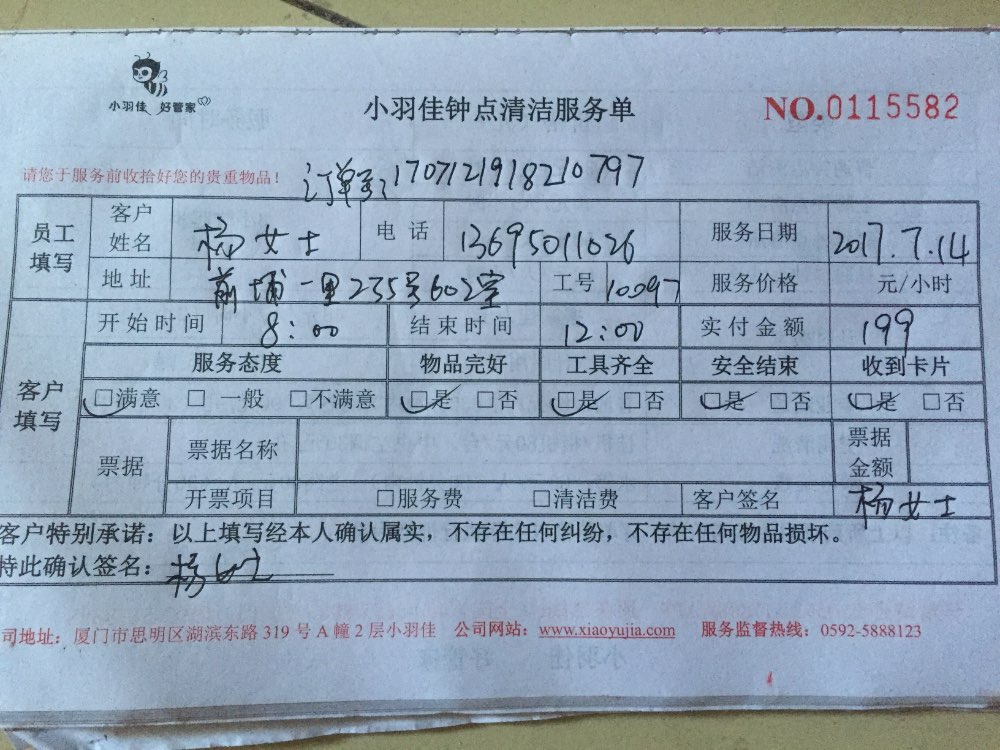 小羽佳 好管家
小羽佳钟点清洁服务单
NO.0115582
请您于服务前收拾好您的贵重物品！
订单号：1707121918210797
员工填写 客户姓名 杨女士 电话 13695011026 服务日期 2017.7.14
地址 前埔一里235号602室 工号 10097 服务价格 元/小时
客户填写 开始时间 8:00 结束时间 12:00 实付金额 199
服务态度 物品完好 工具齐全 安全结束 收到卡片
☑满意 □一般 □不满意 ☑是 □否 ☑是 □否 ☑是 □否 ☑是 □否
票据 票据名称 票据金额
开票项目 □服务费 □清洁费 客户签名 杨女士
客户特别承诺：以上填写经本人确认属实，不存在任何纠纷，不存在任何物品损坏。
特此确认签名：杨女士
司地址：厦门市思明区湖滨东路319号A幢2层小羽佳 公司网站：www.xiaoyujia.com 服务监督热线：0592-5888123